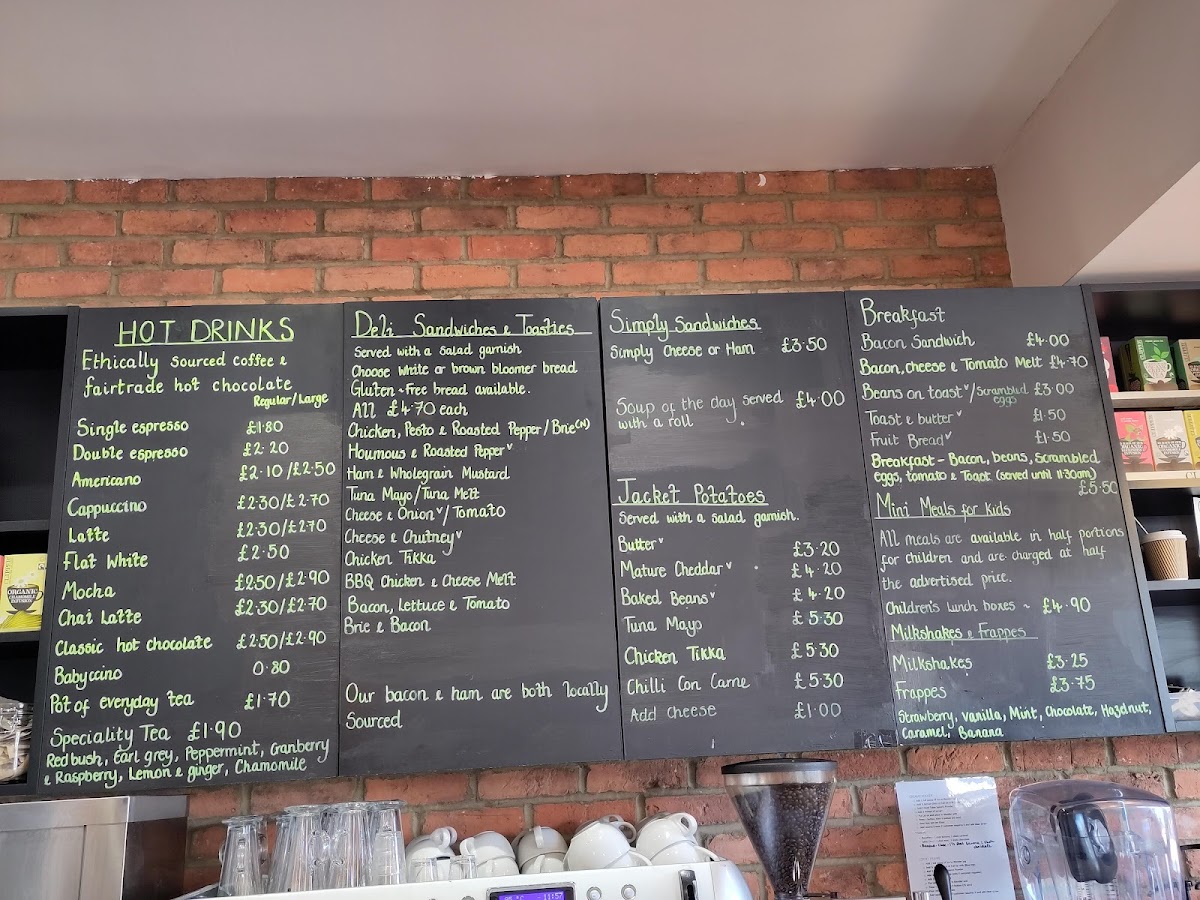 HOT DRINKS
Ethically sourced coffee &
fairtrade hot chocolate
Regular/Large
Single espresso £1.80
Double espresso £2.20
Americano £2.10/£2.50
Cappuccino £2.30/£2.70
Latte £2.30/£2.70
Flat White £2.50
Mocha £2.50/£2.90
Chai Latte £2.30/£2.70
Classic hot chocolate £2.50/£2.90
Babyccino 0.80
Pot of everyday tea £1.70
Speciality Tea £1.90
Redbush, Earl grey, Peppermint, Cranberry
& Raspberry, Lemon & ginger, Chamomile
Deli Sandwiches & Toasties
Served with a salad garnish
Choose white or brown bloomer bread
Gluten-Free bread available.
All £4.70 each
Chicken, Pesto & Roasted Pepper/Brie(N)
Houmous & Roasted Pepper v
Ham & Wholegrain Mustard
Tuna Mayo/Tuna Melt
Cheese & Onion v/Tomato
Cheese & Chutney v
Chicken Tikka
BBQ Chicken & Cheese Melt
Bacon, Lettuce & Tomato
Brie & Bacon
Our bacon & ham are both locally
Sourced
Simply Sandwiches
Simply Cheese or Ham £3.50
Soup of the day served £4.00
with a roll
Jacket Potatoes
Served with a salad garnish.
Butter v £3.20
Mature Cheddar v £4.20
Baked Beans v £4.20
Tuna Mayo £5.30
Chicken Tikka £5.30
Chilli Con Carne £5.30
Add cheese £1.00
Breakfast
Bacon Sandwich £4.00
Bacon, cheese & Tomato Melt £4.70
Beans on toast v/Scrambled eggs £3.00
Toast & butter v £1.50
Fruit Bread v £1.50
Breakfast - Bacon, beans, scrambled
eggs, tomato & Toast (served until 11:30am)
£5.50
Mini Meals for kids
All meals are available in half portions
for children and are charged at half
the advertised price.
Children's lunch boxes ~ £4.90
Milkshakes & Frappes
Milkshakes £3.25
Frappes £3.75
Strawberry, Vanilla, Mint, Chocolate, Hazelnut,
Caramel, Banana
ORGANIC
11:57